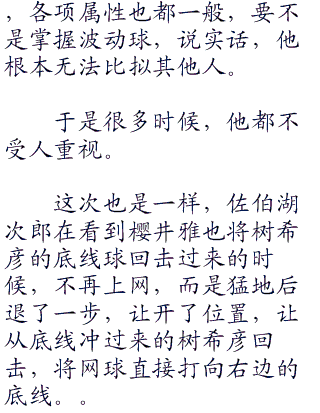 ，各项属性也都一般，要不
是掌握波动球，说实话，他
根本无法比拟其他人。
于是很多时候，他都不
受人重视。
这次也是一样，佐伯湖
次郎在看到樱井雅也将树希
彦的底线球回击过来的时
候，不再上网，而是猛地后
退了一步，让开了位置，让
从底线冲过来的树希彦回
击，将网球直接打向右边的
底线。。